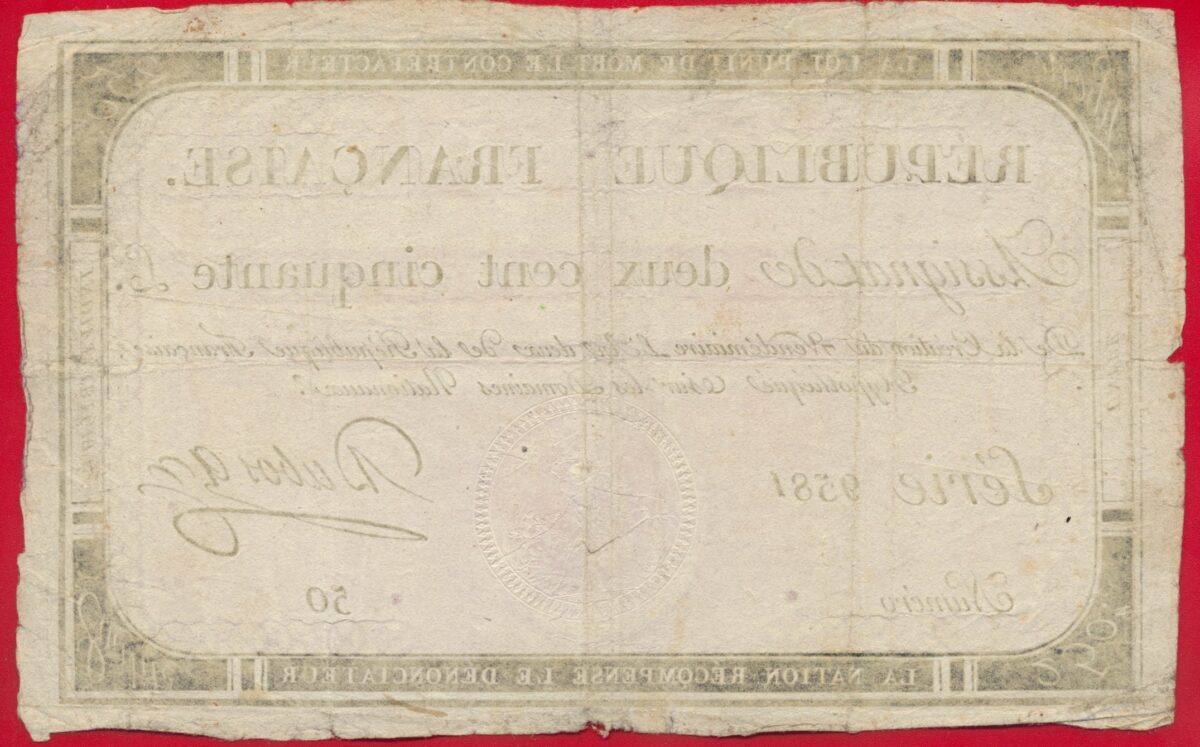 LA LOI PUNIT DE MORT LE CONTREFACTEUR
RÉPUBLIQUE FRANÇAISE.
Assignat de deux cent cinquante L.
De la Création du Vendémiaire L'An deux de la République Française,
Hypothéqué sur les Domaines Nationaux.
Série 9581
Dubosq
Numéro
50
LA NATION RÉCOMPENSE LE DÉNONCIATEUR